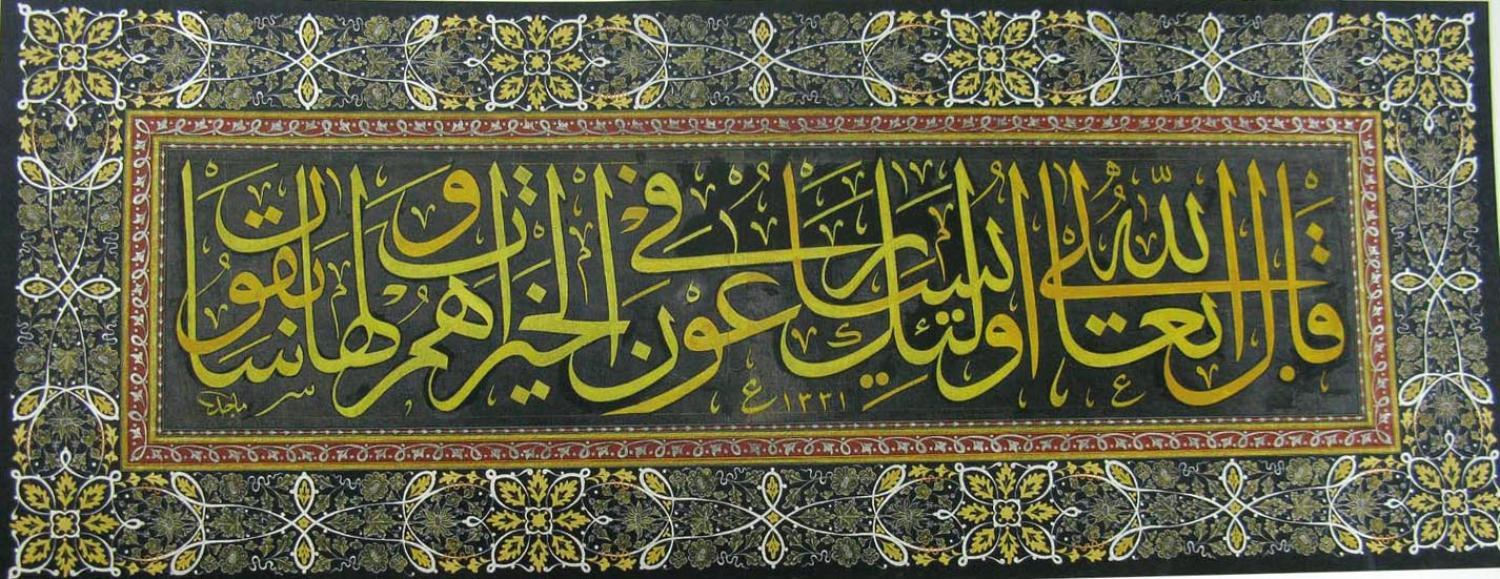 قال الله تعالى اولئك يسارعون في الخيرات وهم لها سابقون
١٣٣١
ماجد